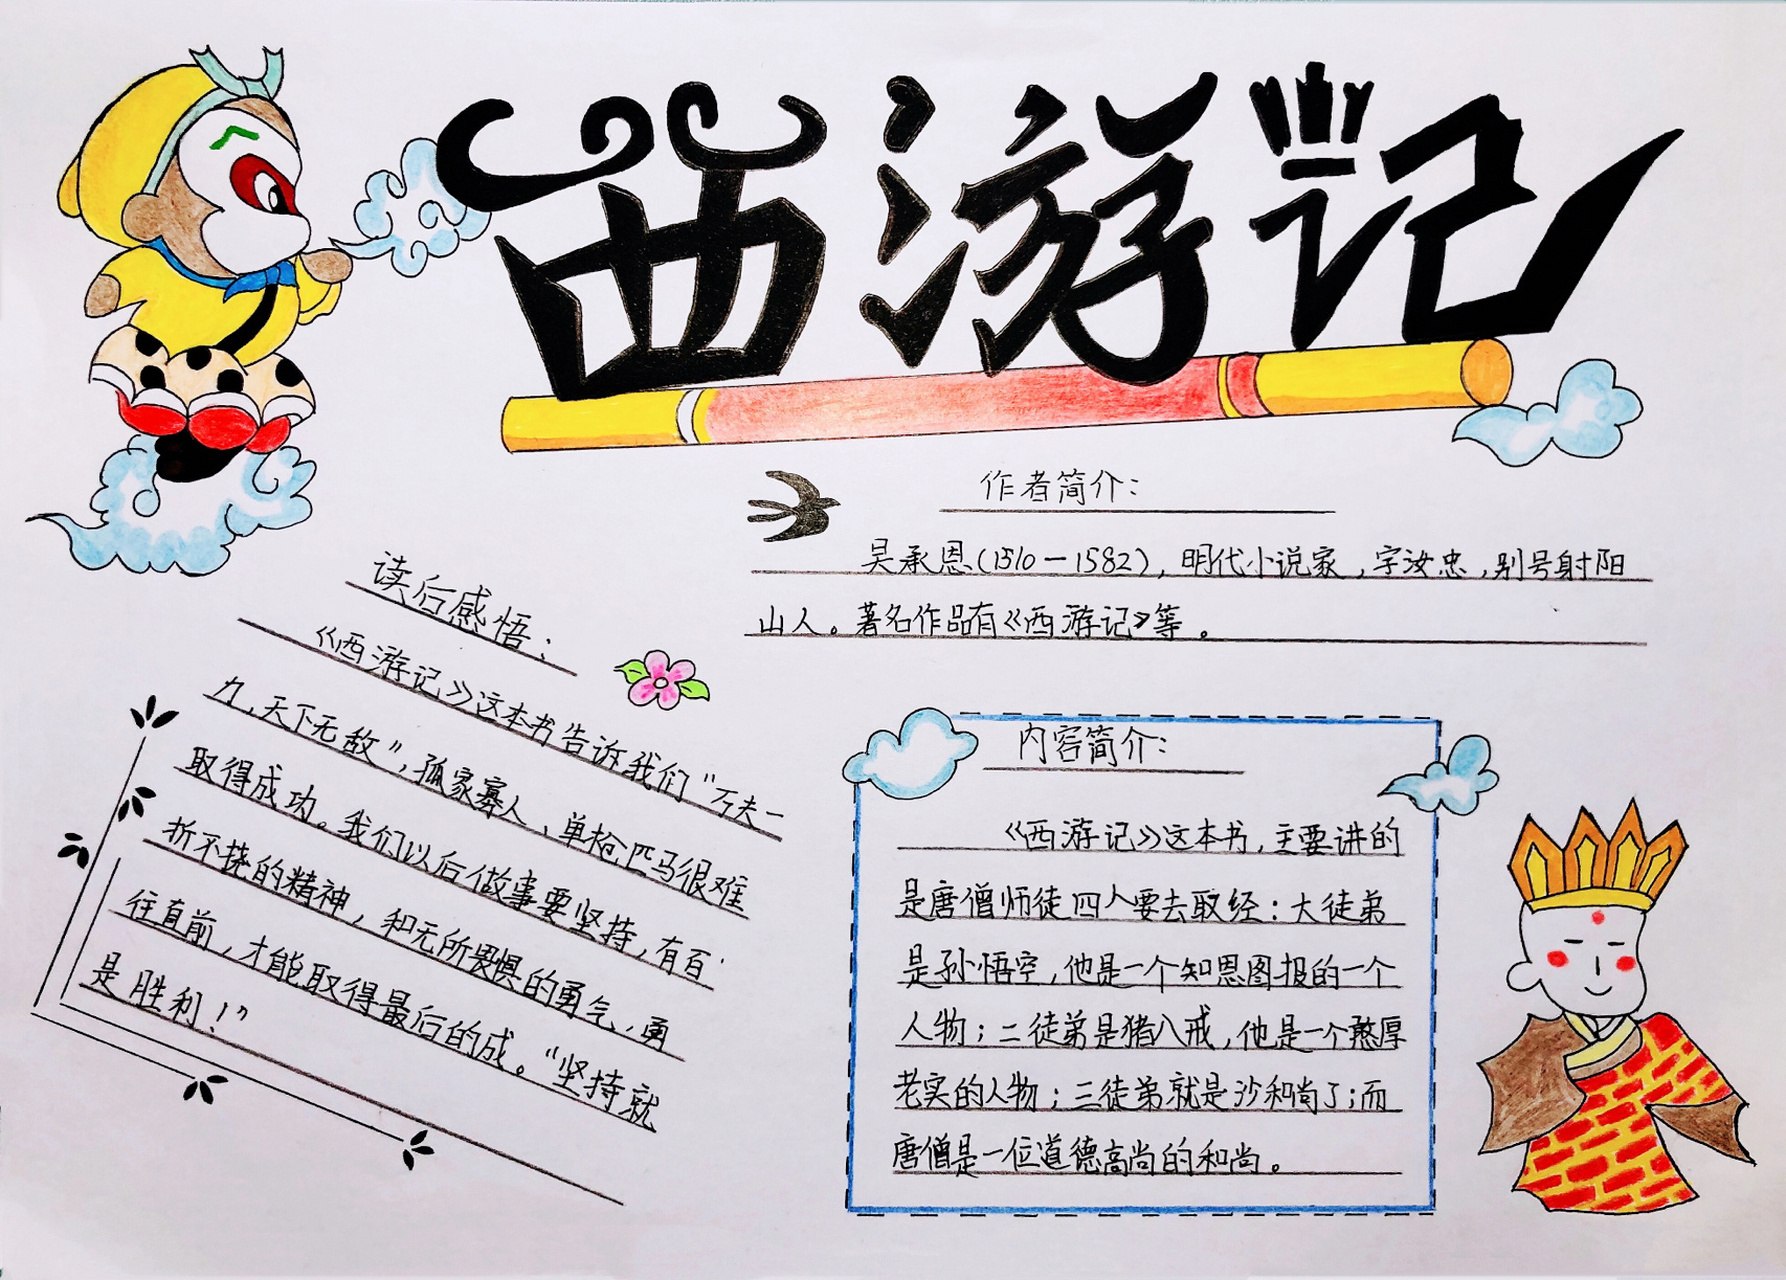 西游记
作者简介：
吴承恩(1510－1582)，明代小说家，字汝忠，别号射阳
山人。著名作品有《西游记》等。
读后感悟：
《西游记》这本书告诉我们“万夫一
九，天下无敌”，孤家寡人、单枪匹马很难
取得成功。我们以后做事要坚持，有百
折不挠的精神，和无所畏惧的勇气，勇
往直前，才能取得最后的成。“坚持就
是胜利！”
内容简介：
《西游记》这本书，主要讲的
是唐僧师徒四人要去取经：大徒弟
是孙悟空，他是一个知恩图报的一个
人物；二徒弟是猪八戒，他是一个憨厚
老实的人物；三徒弟就是沙和尚了；而
唐僧是一位道德高尚的和尚。